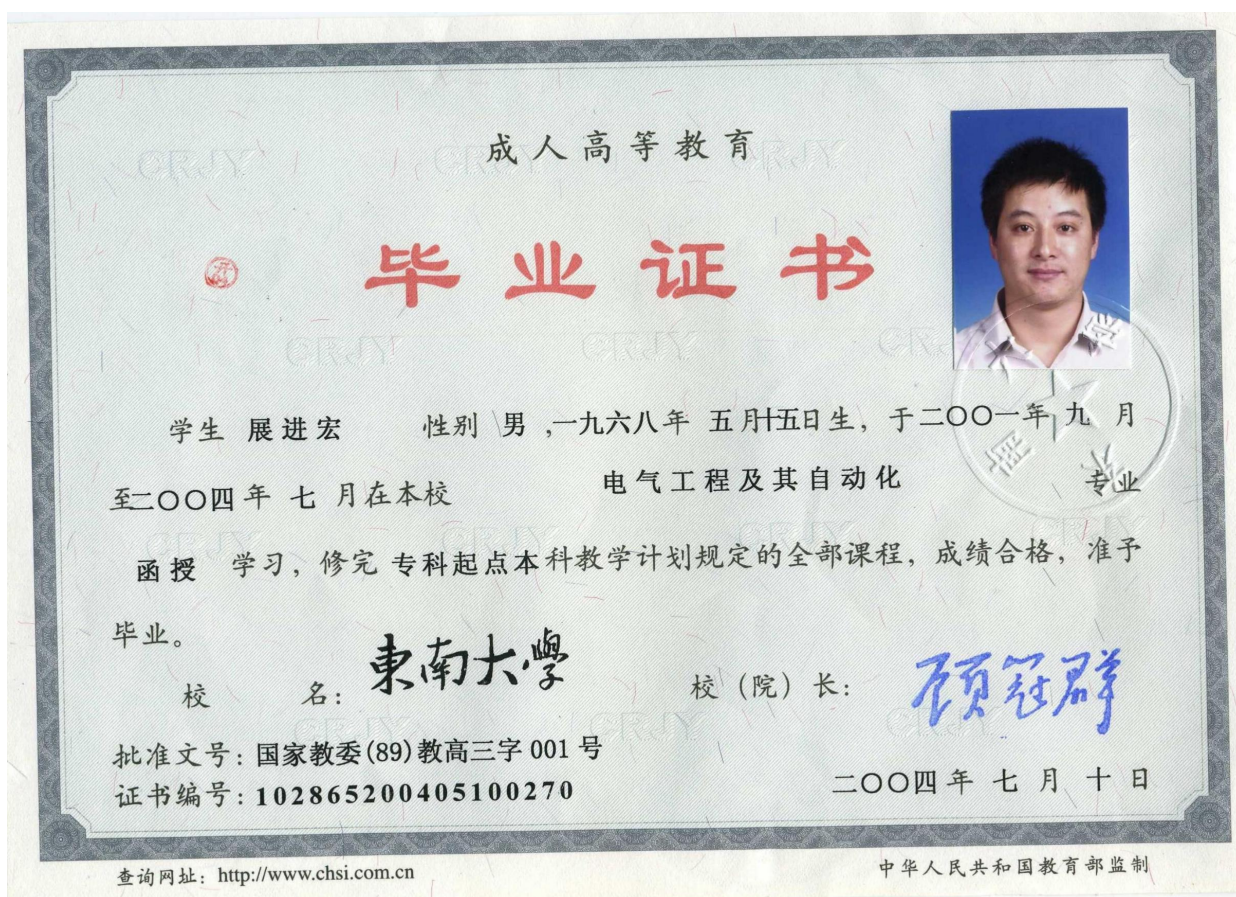 成人高等教育
毕业证书
学生 展进宏 性别 男 ,一九六八年 五月十五日生, 于二〇〇一年 九 月
至二〇〇四年 七 月在本校 电气工程及其自动化 专业
函授 学习, 修完 专科起点本科教学计划规定的全部课程, 成绩合格, 准予
毕业。
校 名: 東南大學 校(院)长: 顾冠群
批准文号: 国家教委(89)教高三字 001 号
证书编号: 102865200405100270
二〇〇四年 七 月 十 日
查询网址: http://www.chsi.com.cn
中华人民共和国教育部监制
CRJY